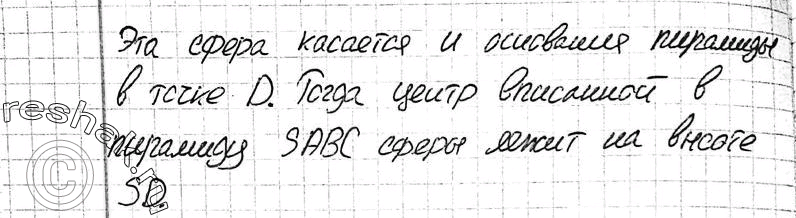 Эта сфера касается и основания пирамиды
в точке D. Тогда центр вписанной в
пирамиду SABC сферы лежит на высоте
SD.